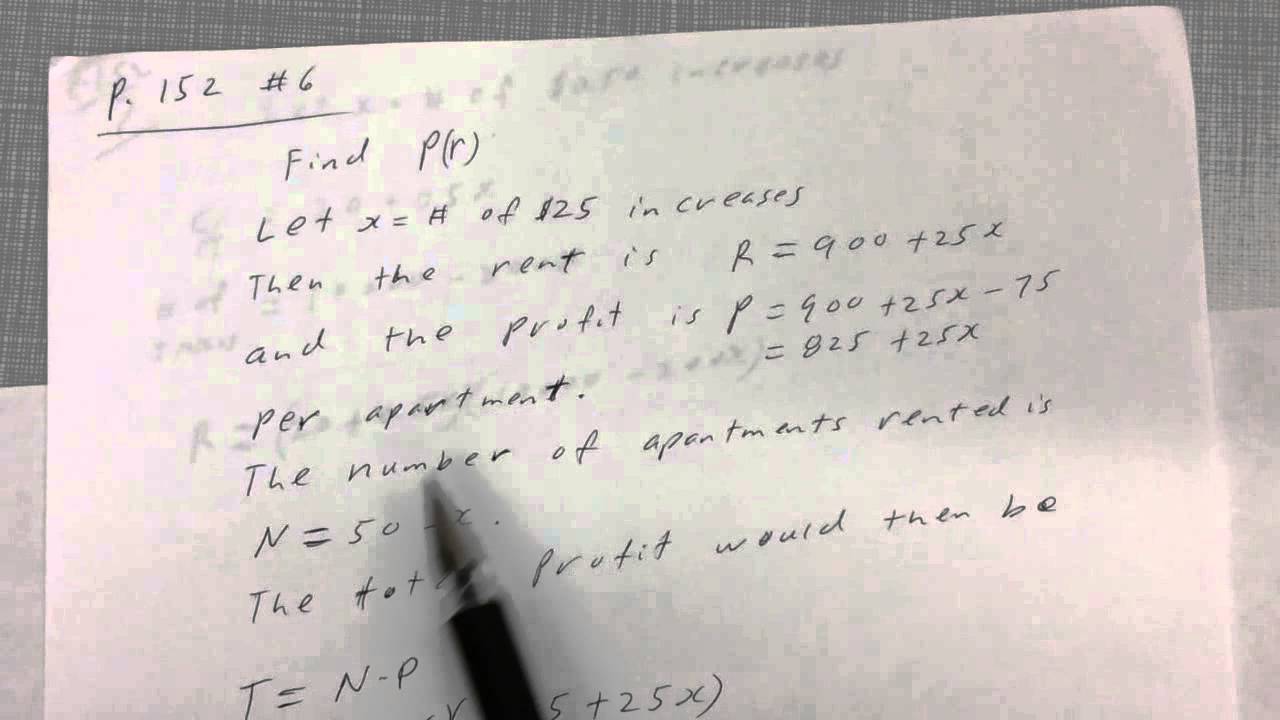 P. 152 #6
Find P(r)
Let x = # of $25 increases
Then the rent is R = 900 + 25x
and the profit is P = 900 + 25x - 75
= 825 + 25x
per apartment.
The number of apartments rented is
N = 50 - x.
The profit would then be
T = N·P
5 + 25x)